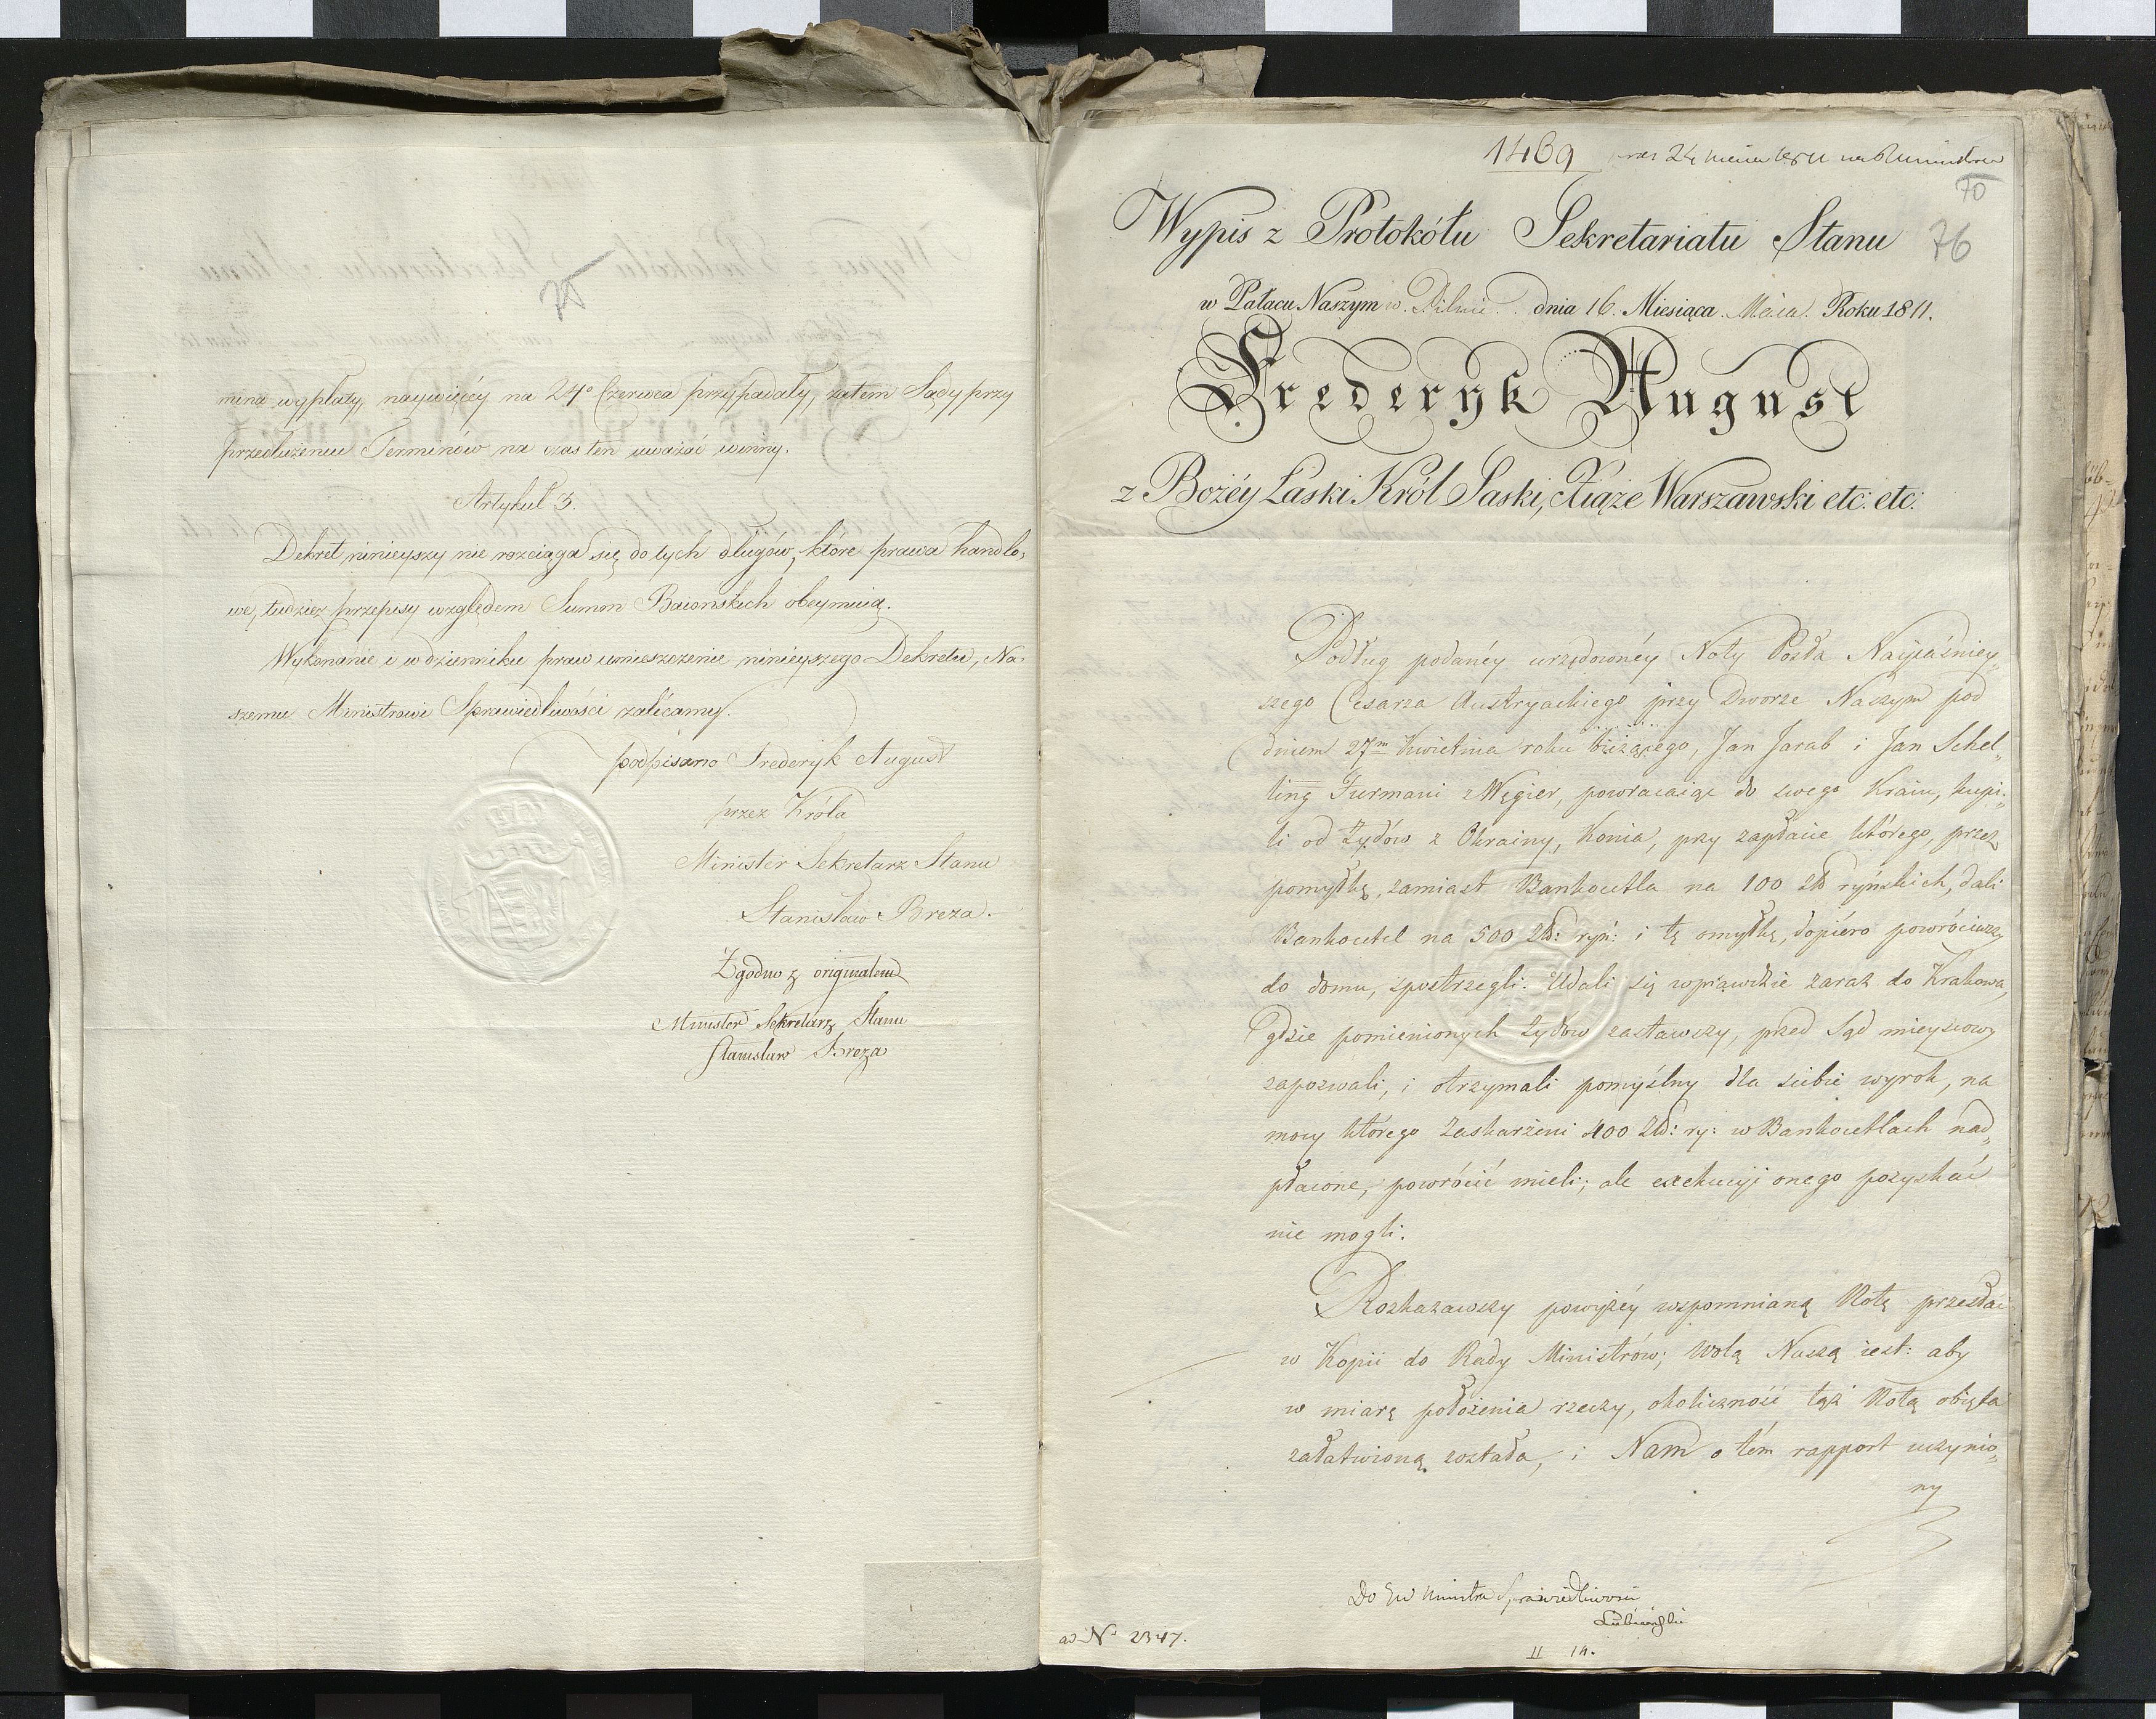 75
mina wypłaty, naywięcéy na 24º Czerwca przypadały, zatem Sądy przy
przedłużeniu Terminów na czas ten uważać winny.
Artykuł 3.
Dekret ninieyszy nie rozciąga się do tych długów, które prawa handlo,
we, tudzież przepisy względem Summ Baiońskich obeymuią.
Wykonanie i w dzienniku praw umieszczenie ninieyszego Dekretu, Na,
szemu Ministrowi Sprawiedliwości zalécamy.
podpisano Frederyk August
przez Króla
Minister Sekretarz Stanu
Stanisław Breza.
Zgodno z originałem
Minister Sekretarz Stanu
Stanisław Breza
1469
70
Wypis z Protokółu Sekretariatu Stanu
76
w Pałacu Naszym w Pilnic dnia 16. Miesiąca Maia Roku 1811.
Frederyk August
z Bożéy Łaski Król Saski, Xiąże Warszawski etc: etc:
Podług podanéy urzędownéy Noty Posła Nayiaśniey,,
szego Cesarza Austryackiego przy Dworze Naszym pod
dniem 27m Kwietnia roku bieżącego, Jan Jarab i Jan Schel,,
ling Furmani z Węgier, powracaiąc do swego Kraiu, kupi,,
li od Żydów z Okrainy, Konia, przy zapłacie którego, przez
pomyłkę, zamiast Bankocetla na 100 Zł ryńskich, dali
Bankocetel na 500 Zł: ryń: i tę omyłkę, dopiéro powróciwszy
do domu, spostrzegli. Udali się wprawdzie zaraz do Krakowa,
gdzie pomienionych Żydów zastawszy, przed Sąd mieyscowy
zapozwali, i otrzymali pomyślny dla siebie wyrok, na
mocy którego Zaskarżeni 400 Zł: ry: w Bankocetlach nad,,
płacone, powrócić mieli; ale exekucyi onego pozyskać
nie mogli.
Rozkazawszy powyżéy wspomnianą Notę przesłać
w Kopii do Rady Ministrów; Wolą Naszą iest: aby
w miarę położenia rzeczy, okoliczność tąż Notą obięta
załatwioną została, i Nam o tém rapport uczynio,,
ny
Do JW Ministra Sprawiedliwości
Łubieński
ad Nº 2347.
II 14.